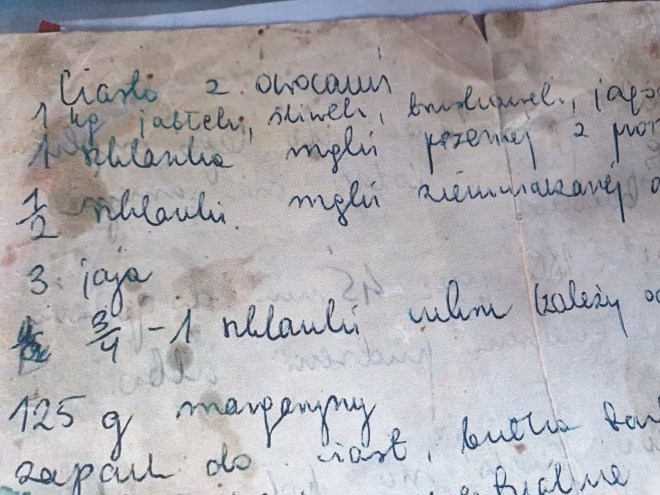 Ciasto z owocami
1 kg jabłek, śliwek, truskawek, jagó
1 szklanka mąki pszennej z
1/2 szklanki mąki ziemniaczanej
3 jaja
3/4 - 1 szklanki cukru (zależy od
125 g margaryny
zapach do ciast, bułka tar